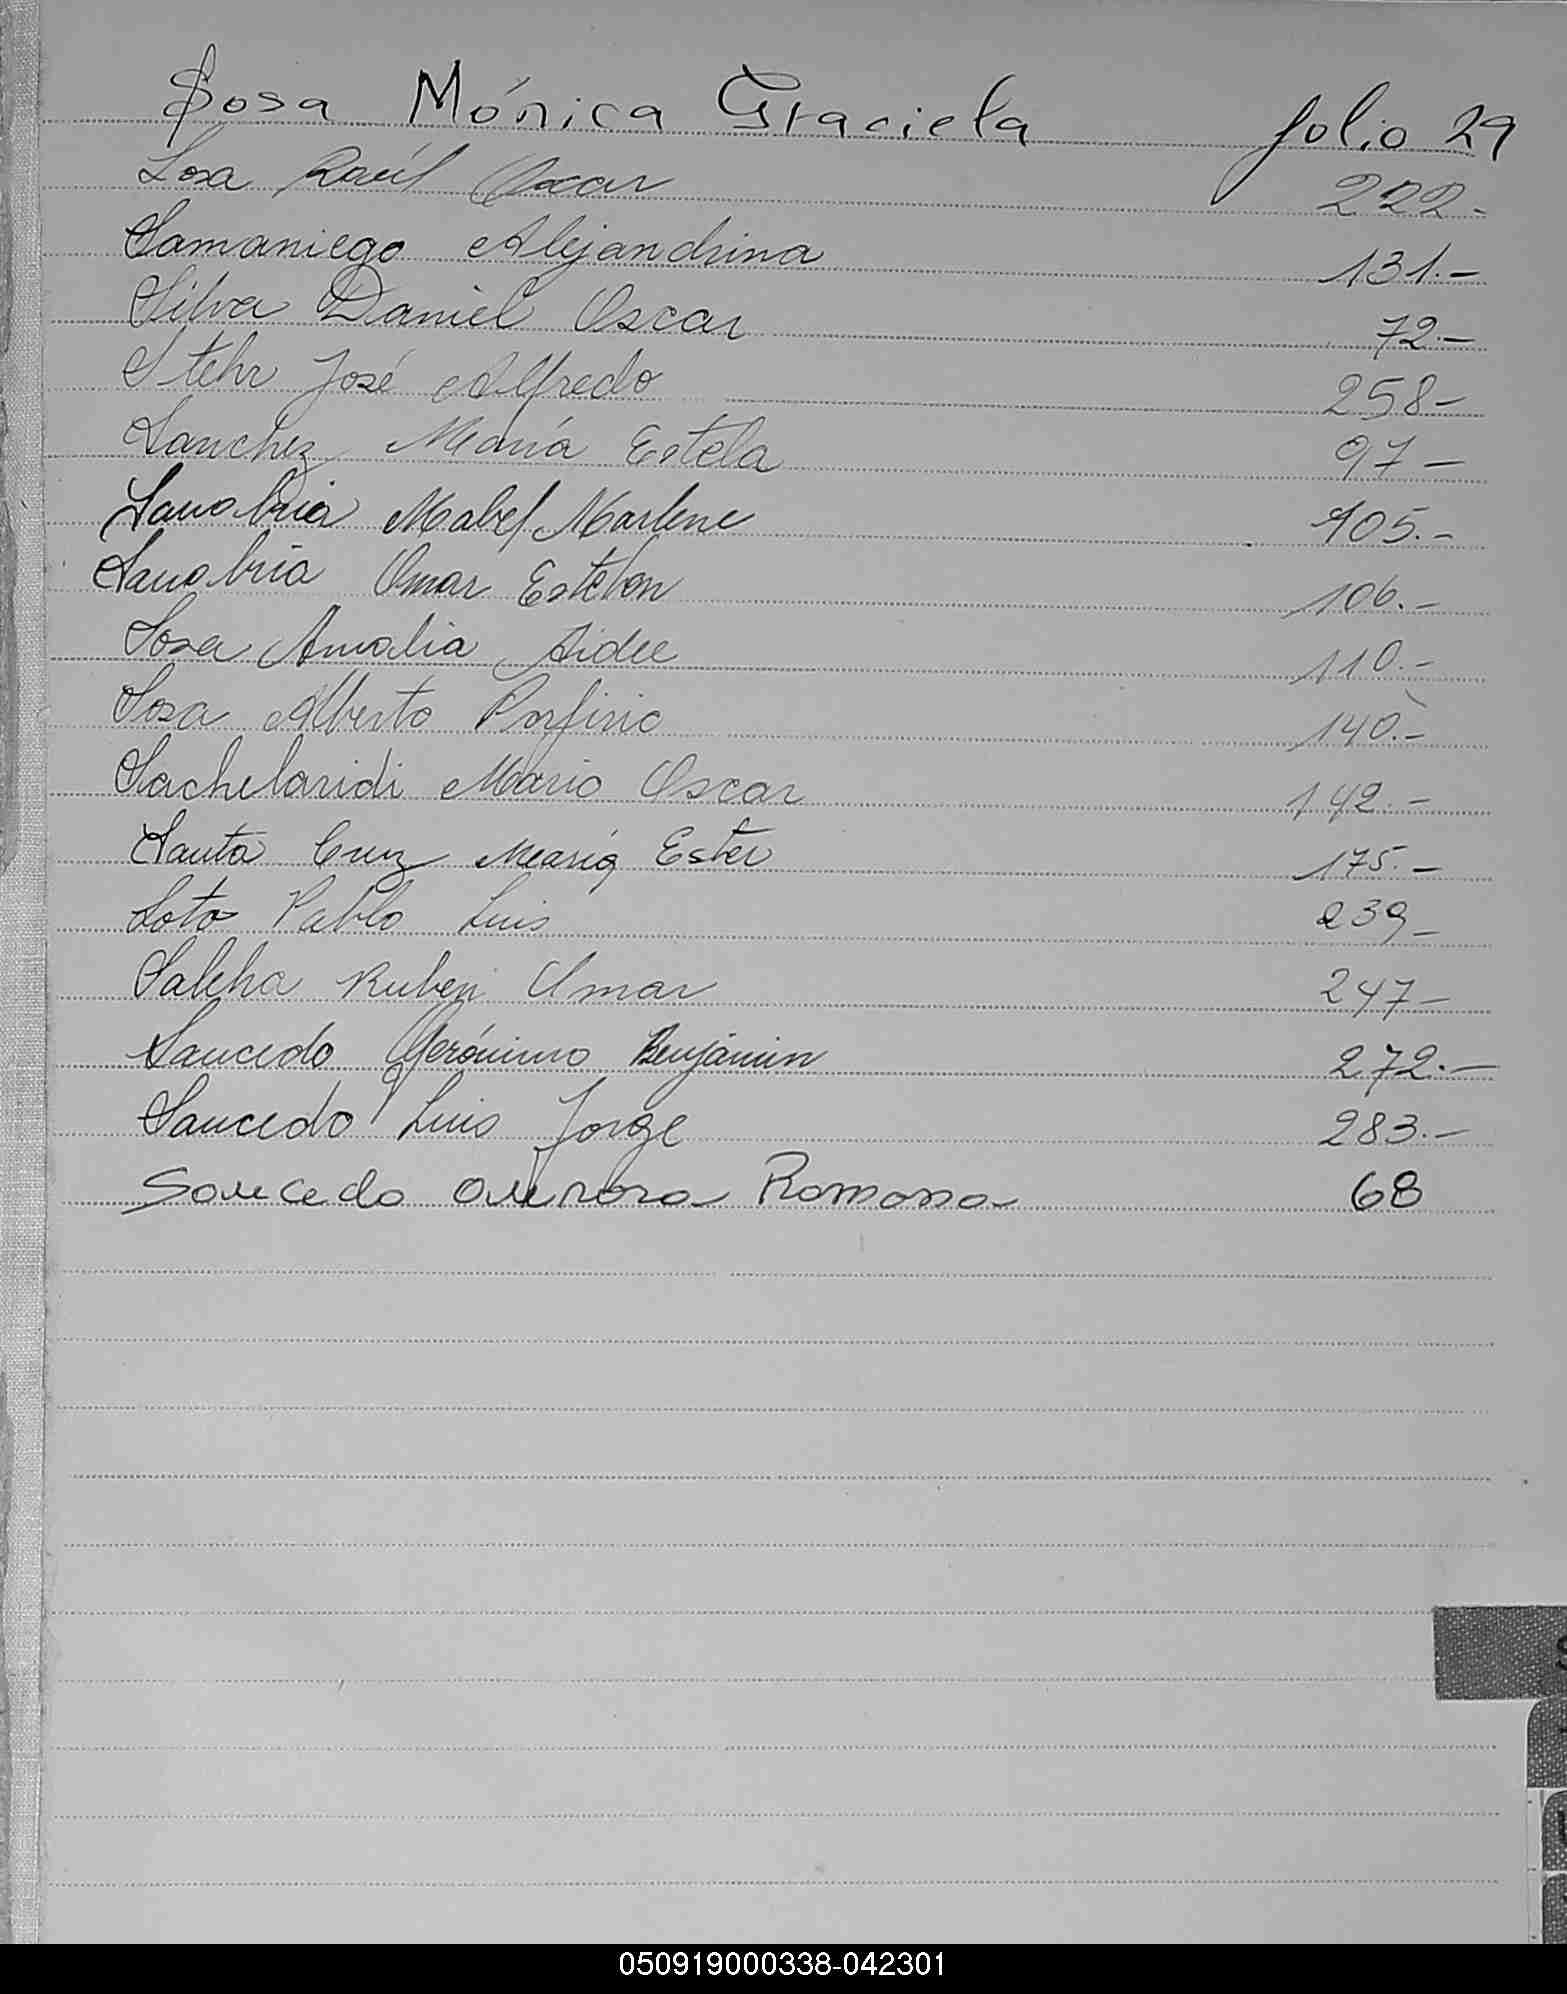 Sosa Mónica Graciela folio 29
Sosa Raúl Oscar 222.-
Samaniego Alejandrina 131.-
Silva Daniel Oscar 72.-
Stehr José Alfredo 258-
Sanchez María Estela 97-
Sanabria Mabel Marlene 105.-
Sanabria Omar Esteban 106.-
Sosa Amalia Aidee 110.-
Sosa Alberto Porfirio 140.-
Sachelaridi Mario Oscar 142.-
Santa Cruz María Ester 175.-
Soto Pablo Luis 239-
Salcha Ruben Omar 247-
Saucedo Gerónimo Benjámin 272.-
Saucedo Luis Jorge 283.-
Saucedo Aurora Romona 68
S
050919000338-042301